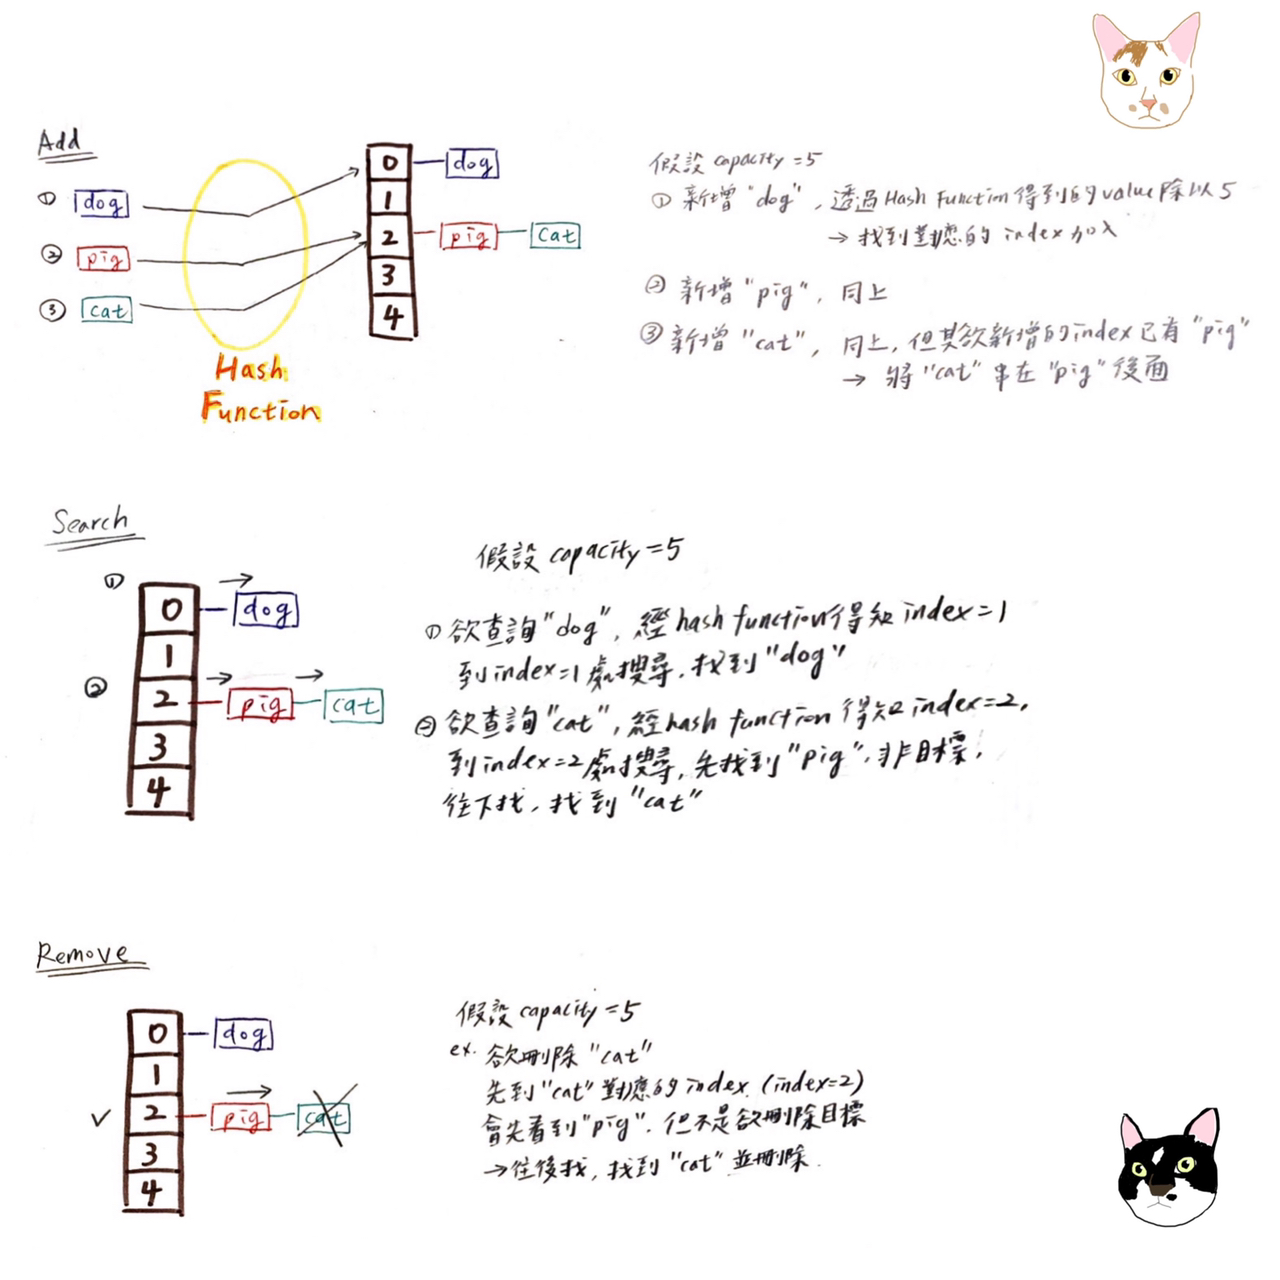 Add
① dog
② pig
③ cat
Hash
Function
0 dog
1
2 pig cat
3
4
假設 capacity = 5
① 新增 "dog", 透過 Hash Function 得到的 value 除以 5
→ 找到對應的 index 加入
② 新增 "pig", 同上
③ 新增 "cat", 同上, 但其欲新增的 index 已有 "pig"
→ 將 "cat" 串在 "pig" 後面
Search
①
0 dog
1
② 2 pig cat
3
4
假設 capacity = 5
① 欲查詢 "dog", 經 hash function 得知 index = 1
到 index = 1 處搜尋, 找到 "dog"
② 欲查詢 "cat", 經 hash function 得知 index = 2,
到 index = 2 處搜尋, 先找到 "pig", 非目標,
往下找, 找到 "cat"
Remove
0 dog
1
2 pig cat
3
4
假設 capacity = 5
ex. 欲刪除 "cat"
先到 "cat" 對應的 index (index=2)
會先看到 "pig", 但不是欲刪除目標
→ 往後找, 找到 "cat" 並刪除